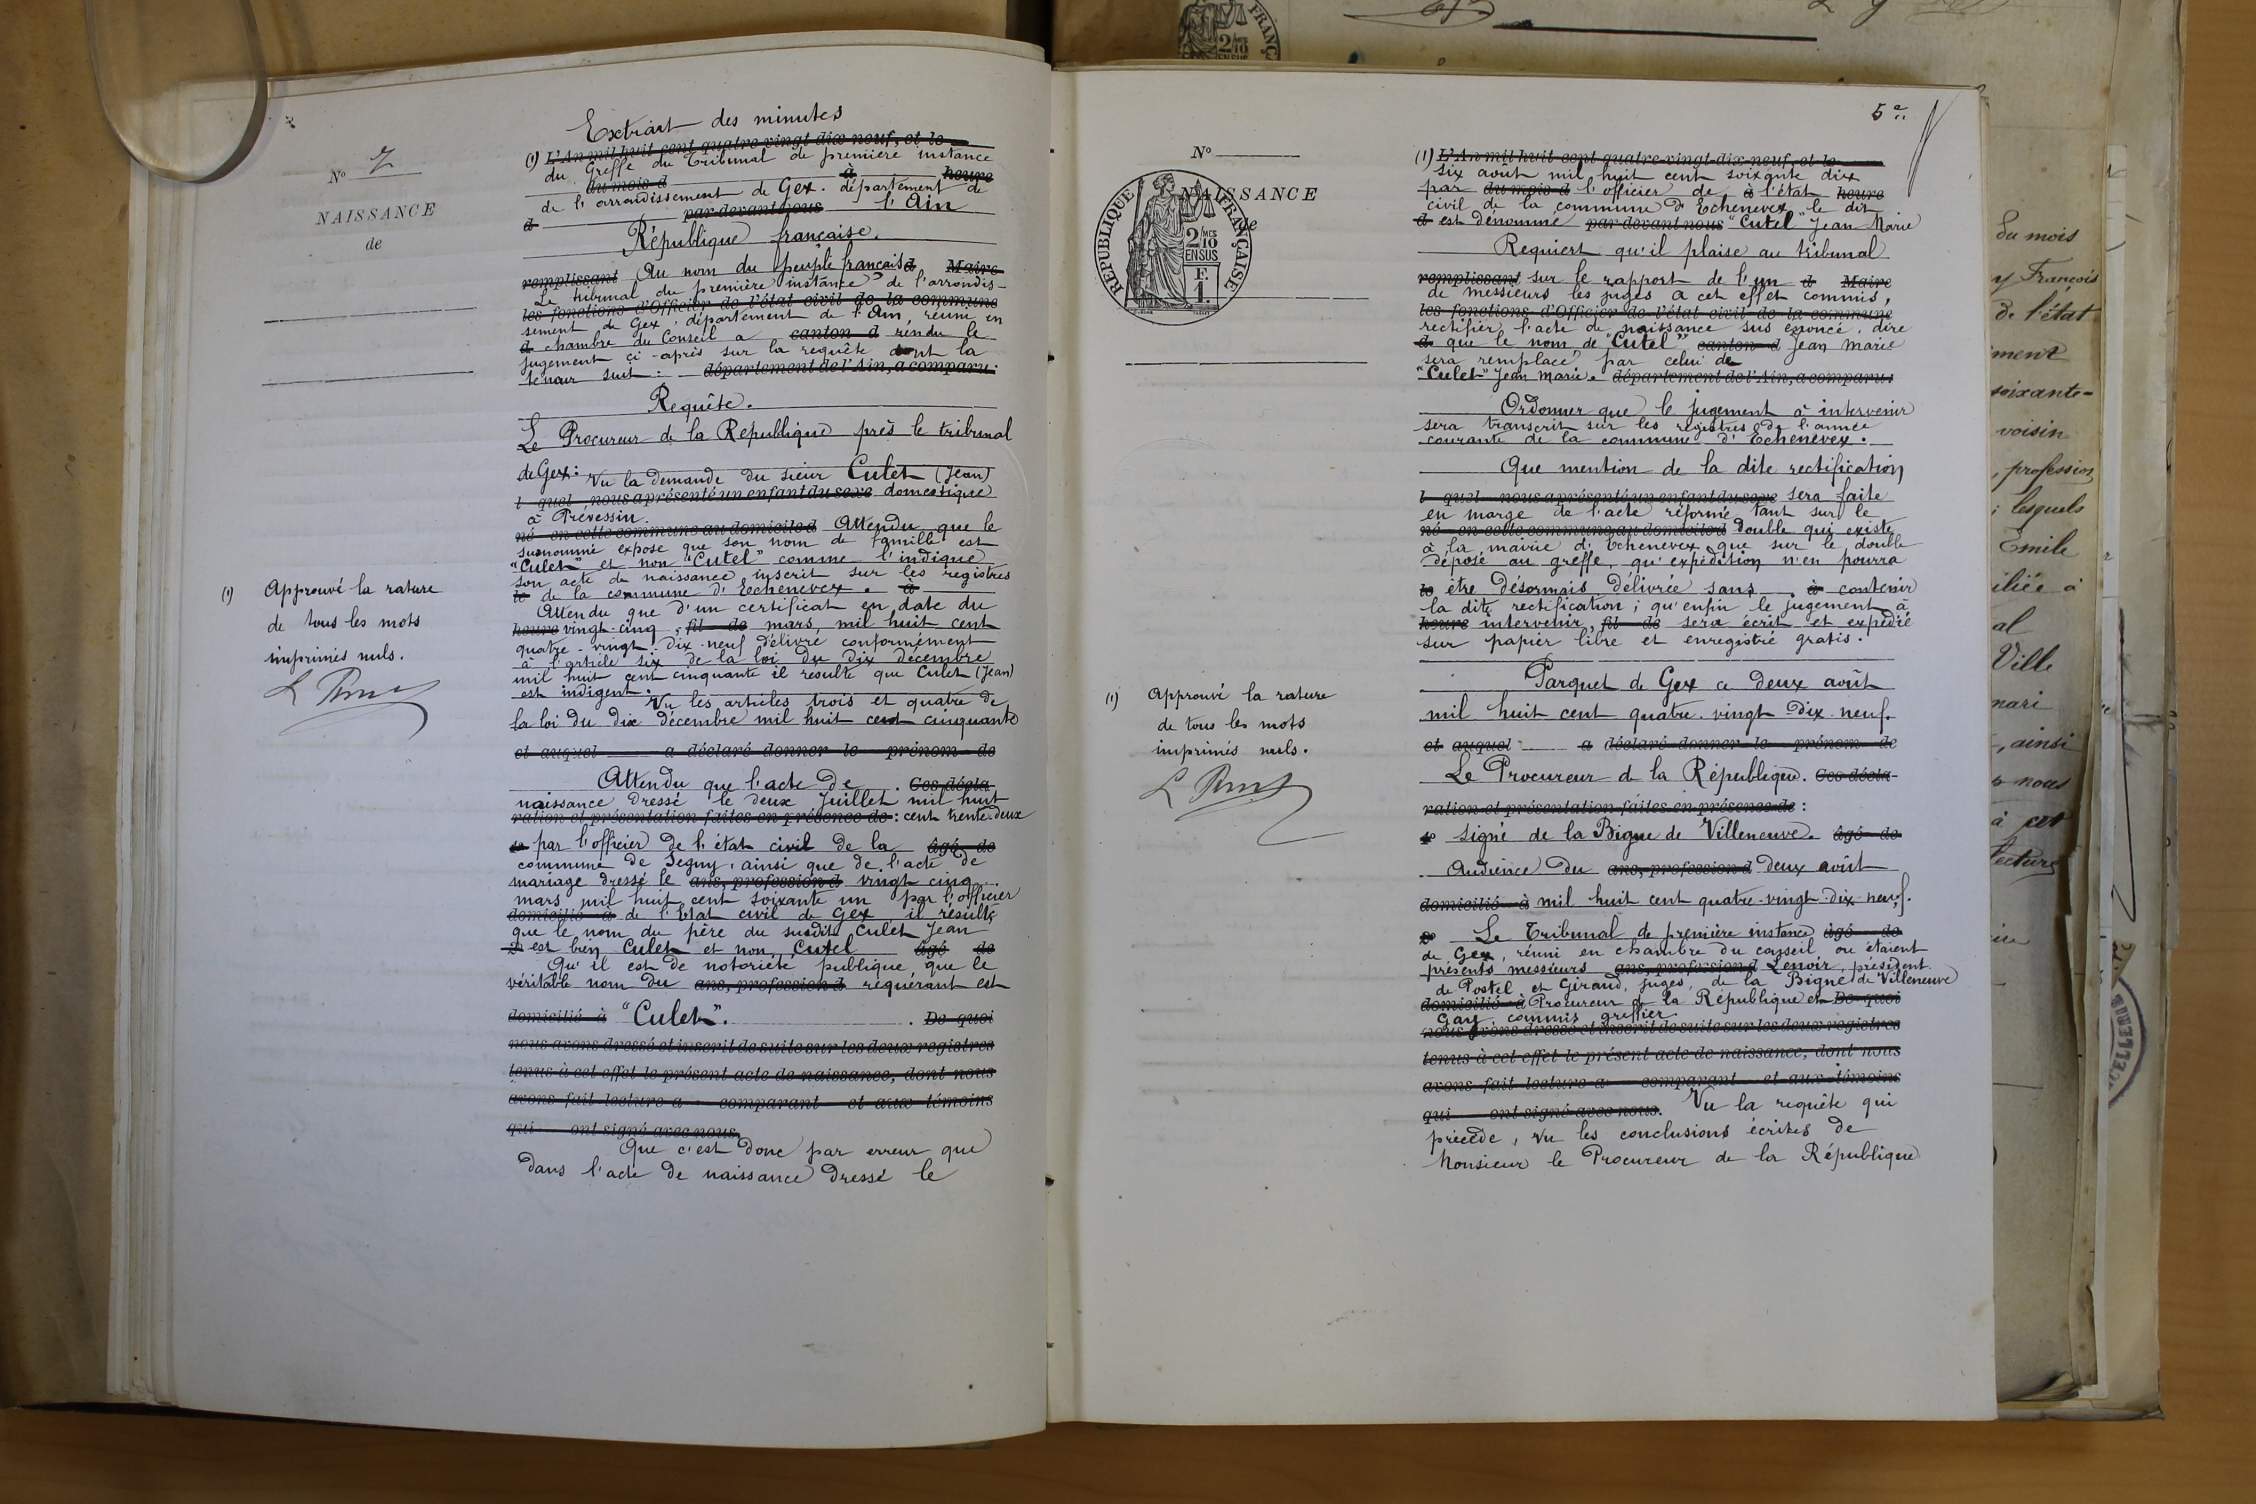 Nº 7
NAISSANCE
de
(1) Approuvé la rature
de tous les mots
imprimés nuls.
Extrait des minutes
(1) L'An mil huit cent quatre-vingt-dix-neuf, et le
du Greffe du Tribunal de première instance
du mois d à heure
de l'arrondissement de Gex. département de
d par-devant nous l'Ain
République française.
remplissant Au nom du peuple français d Maire
Le tribunal de première instance de l'arrondis-
les fonctions d'Officier de l'état civil de la commune
sement de Gex, département de l'Ain, réuni en
d chambre du Conseil a canton d rendu le
jugement ci-après sur la requête dont la
teneur suit : département de l'Ain, a comparu :
Requête.
Le Procureur de la République près le tribunal
de Gex : Vu la demande du sieur Culet (Jean)
l quel nous a présenté un enfant du sexe domestique
à Prévessin.
né en cette commune au domicile d Attendu que le
susnommé expose que son nom de famille est
"Culet" et non "Cutel" comme l'indique
son acte de naissance inscrit sur les registres
le de la commune d'Echenevex. à
Attendu que d'un certificat en date du
heure vingt-cinq, fil de mars, mil huit cent
quatre-vingt-dix-neuf délivré conformément
à l'article six de la loi du dix décembre
mil huit cent cinquante il résulte que Culet (Jean)
est indigent.
Vu les articles trois et quatre de
la loi du dix décembre mil huit cent cinquante
et auquel a déclaré donner le prénom de
Attendu que l'acte de . Ces décla-
naissance dressé le deux Juillet mil huit
ration et présentation faites en présence de : cent trente-deux
par l'officier de l'état civil de la âgé de
commune de Segny, ainsi que de l'acte de
mariage dressé le ans, profession d vingt cinq
mars mil huit cent soixante un par l'officier
domicilié à de l'Etat civil de Gex, il résulte
que le nom du père du susdit Culet Jean
est bien Culet et non Cutel âgé de
Qu'il est de notoriété publique que le
véritable nom du ans, profession d requérant est
domicilié à "Culet". De quoi
nous avons dressé et inscrit de suite sur les deux registres
tenus à cet effet le présent acte de naissance, dont nous
avons fait lecture a comparant et aux témoins
qui ont signé avec nous.
Que c'est donc par erreur que
dans l'acte de naissance dressé le
5
Nº
NAISSANCE
de
RÉPUBLIQUE FRANÇAISE
2/10 MES
EN SUS
F.
1.
(1) Approuvé la rature
de tous les mots
imprimés nuls.
(1) L'An mil huit cent quatre-vingt-dix-neuf, et le
six août mil huit cent soixante dix
par du mois d l'officier de à l'état heure
civil de la commune d'Echenevex le dit
d est dénommé par-devant nous "Cutel" Jean Marie
Requiert qu'il plaise au tribunal
remplissant sur le rapport de l'un d Maire
de messieurs les juges à cet effet commis,
les fonctions d'Officier de l'état civil de la commune
rectifier l'acte de naissance sus énoncé, dire
d que le nom de "Cutel" canton d Jean Marie
sera remplacé par celui de
"Culet" Jean Marie. département de l'Ain, a comparu :
Ordonner que le jugement à intervenir
sera transcrit sur les registres de l'année
courante de la commune d'Echenevex.
Que mention de la dite rectification
l quel nous a présenté un enfant du sexe sera faite
en marge de l'acte réformé tant sur le
né en cette commune au domicile d double qui existe
à la mairie d'Echenevex que sur le double
déposé au greffe, qu'expédition n'en pourra
le être désormais délivrée sans, à contenir
la dite rectification ; qu'enfin le jugement à
heure intervenir, fil de sera écrit et expédié
sur papier libre et enregistré gratis.
Parquet de Gex ce deux août
mil huit cent quatre-vingt-dix-neuf.
et auquel a déclaré donner le prénom de
Le Procureur de la République. Ces décla-
ration et présentation faites en présence de :
Signé de la Bigne de Villeneuve. âgé de
Audience du ans, profession d deux août
domicilié à mil huit cent quatre-vingt-dix-neuf.
Le Tribunal de première instance âgé de
de Gex, réuni en chambre du conseil où étaient
présents messieurs ans, profession d Lenoir, président
de Postel et Giraud, juges, de la Bigne de Villeneuve
domicilié à Procureur de la République et De quoi
Gay, commis greffier.
nous avons dressé et inscrit de suite sur les deux registres
tenus à cet effet le présent acte de naissance, dont nous
avons fait lecture a comparant et aux témoins
qui ont signé avec nous. Vu la requête qui
précède, vu les conclusions écrites de
Monsieur le Procureur de la République
du mois
y François
de l'état
soixante-
voisin
, profession
; lesquels
Emile
al
Ville
, ainsi
nous
à cet
lecture